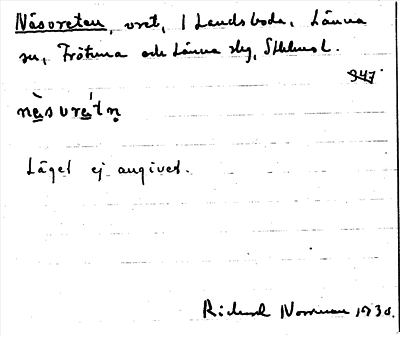 Näsvreten, vret, i Landsboda, Länna
sn, Frötuna och Länna skg, Sthlms l.
347
nä̀svrétn̥
Läget ej angivet.
Richard Norrman 1930.